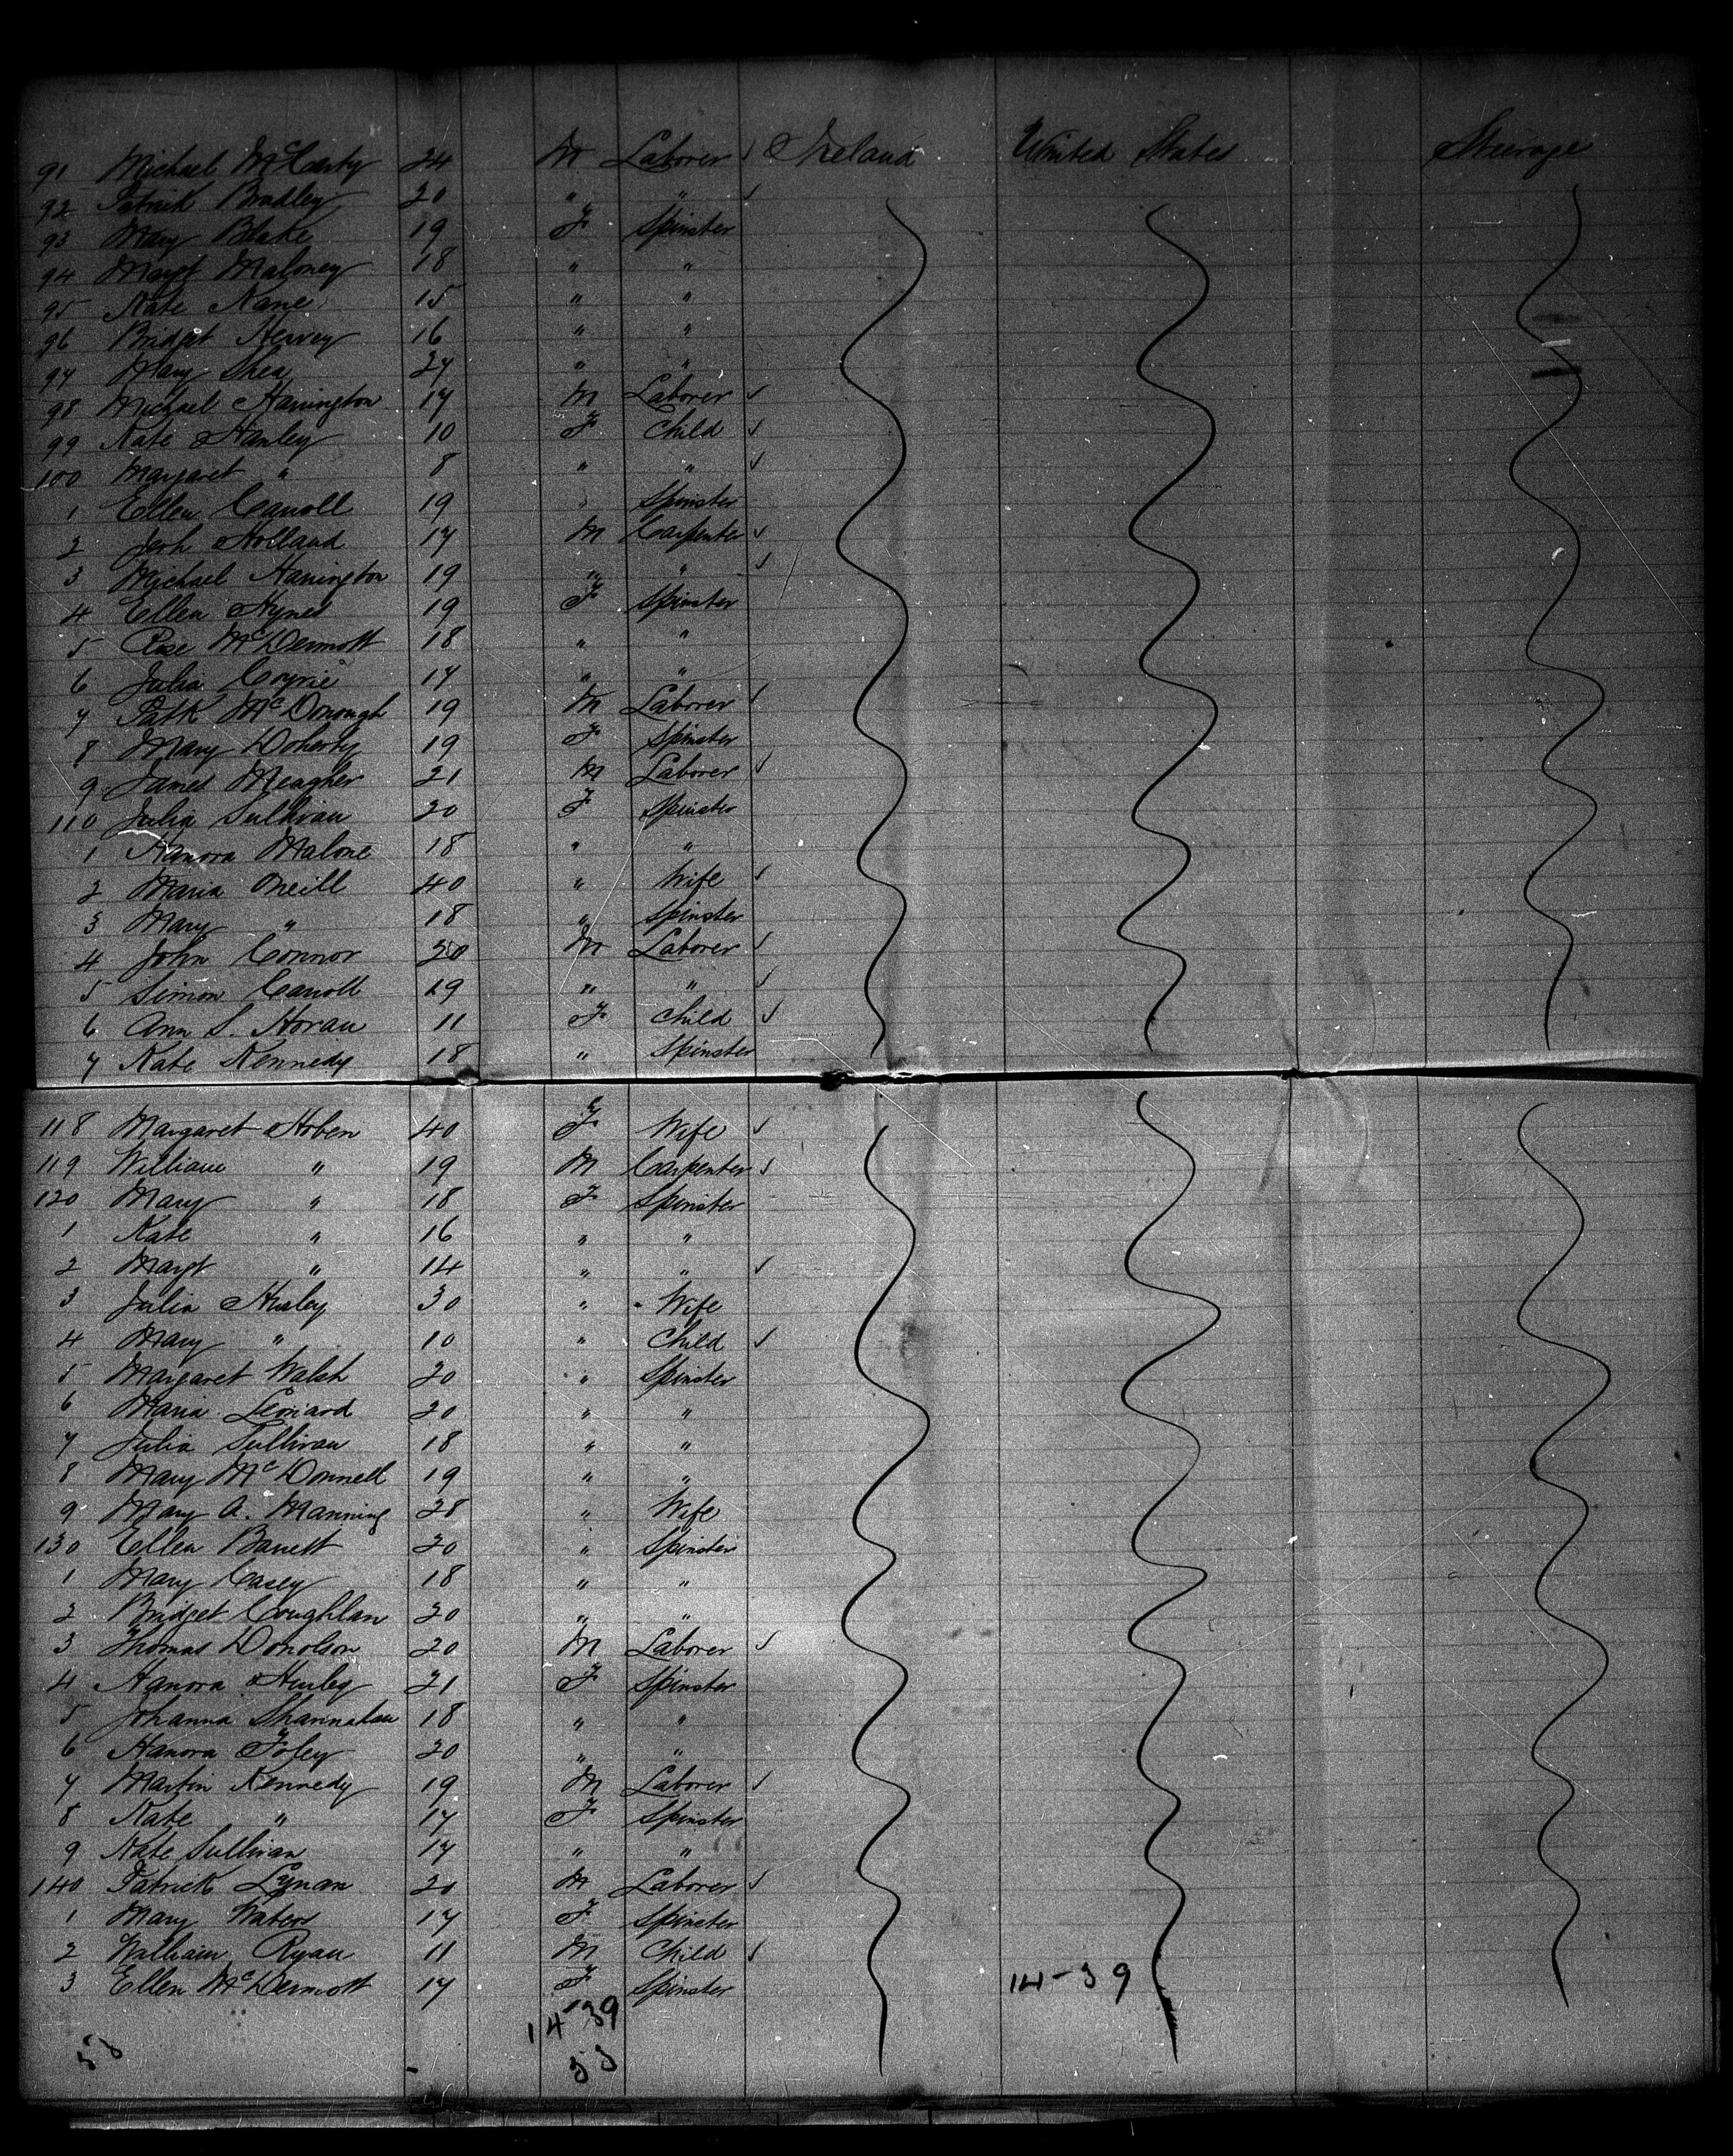 91 Michael McCarty 24 M Laborer ✓ Ireland United States Steerage
92 Patrick Bradley 20 " " ✓
93 Mary Blake 19 F Spinster
94 Margt Maloney 18 " "
95 Kate Kane 15 " "
96 Bridget Hervey 16 " "
97 Mary Shea 27 " "
98 Michael Harrington 17 M Laborer ✓
99 Kate Hanley 10 F Child ✓
100 Margaret " 8 " " ✓
1 Ellen Carroll 19 " Spinster
2 Jerh Holland 17 M Carpenter ✓
3 Michael Harrington 19 " " ✓
4 Ellen Hynes 19 F Spinster
5 Rose McDermott 18 " "
6 Julia Coyne 17 " "
7 Patk McDonough 19 M Laborer ✓
8 Mary Doherty 19 F Spinster
9 James Meagher 21 M Laborer ✓
110 Julia Sullivan 20 F Spinster
1 Hanora Malone 18 " "
2 Maria Oneill 40 " Wife ✓
3 Mary " 18 " Spinster
4 John Connor 20 M Laborer ✓
5 Simon Carroll 19 " " ✓
6 Ann S. Horan 11 F Child ✓
7 Kate Kennedy 18 " Spinster
118 Margaret Hoben 40 F Wife ✓
119 William " 19 M Carpenter ✓
120 Mary " 18 F Spinster
1 Kate " 16 " "
2 Margt " 14 " " ✓
3 Julia Husley 30 " Wife
4 Mary " 10 " Child ✓
5 Margaret Walsh 20 " Spinster
6 Maria Leonard 20 " "
7 Julia Sullivan 18 " "
8 Mary McDonnell 19 " "
9 Mary A. Manning 28 " Wife
130 Ellen Barrett 20 " Spinster
1 Mary Casey 18 " "
2 Bridget Coughlan 20 " "
3 Thomas Donolson 20 M Laborer ✓
4 Hanora Hurley 21 F Spinster
5 Johanna 18 " "
6 Hanora Foley 20 " "
7 Martin Kennedy 19 M Laborer ✓
8 Kate " 17 F Spinster
9 Kate Sullivan 17 " "
140 Patrick Lynan 20 M Laborer ✓
1 Mary Waters 17 F Spinster
2 William Ryan 11 M Child ✓
3 Ellen McDermott 17 F Spinster 14-39
14-39
53 53